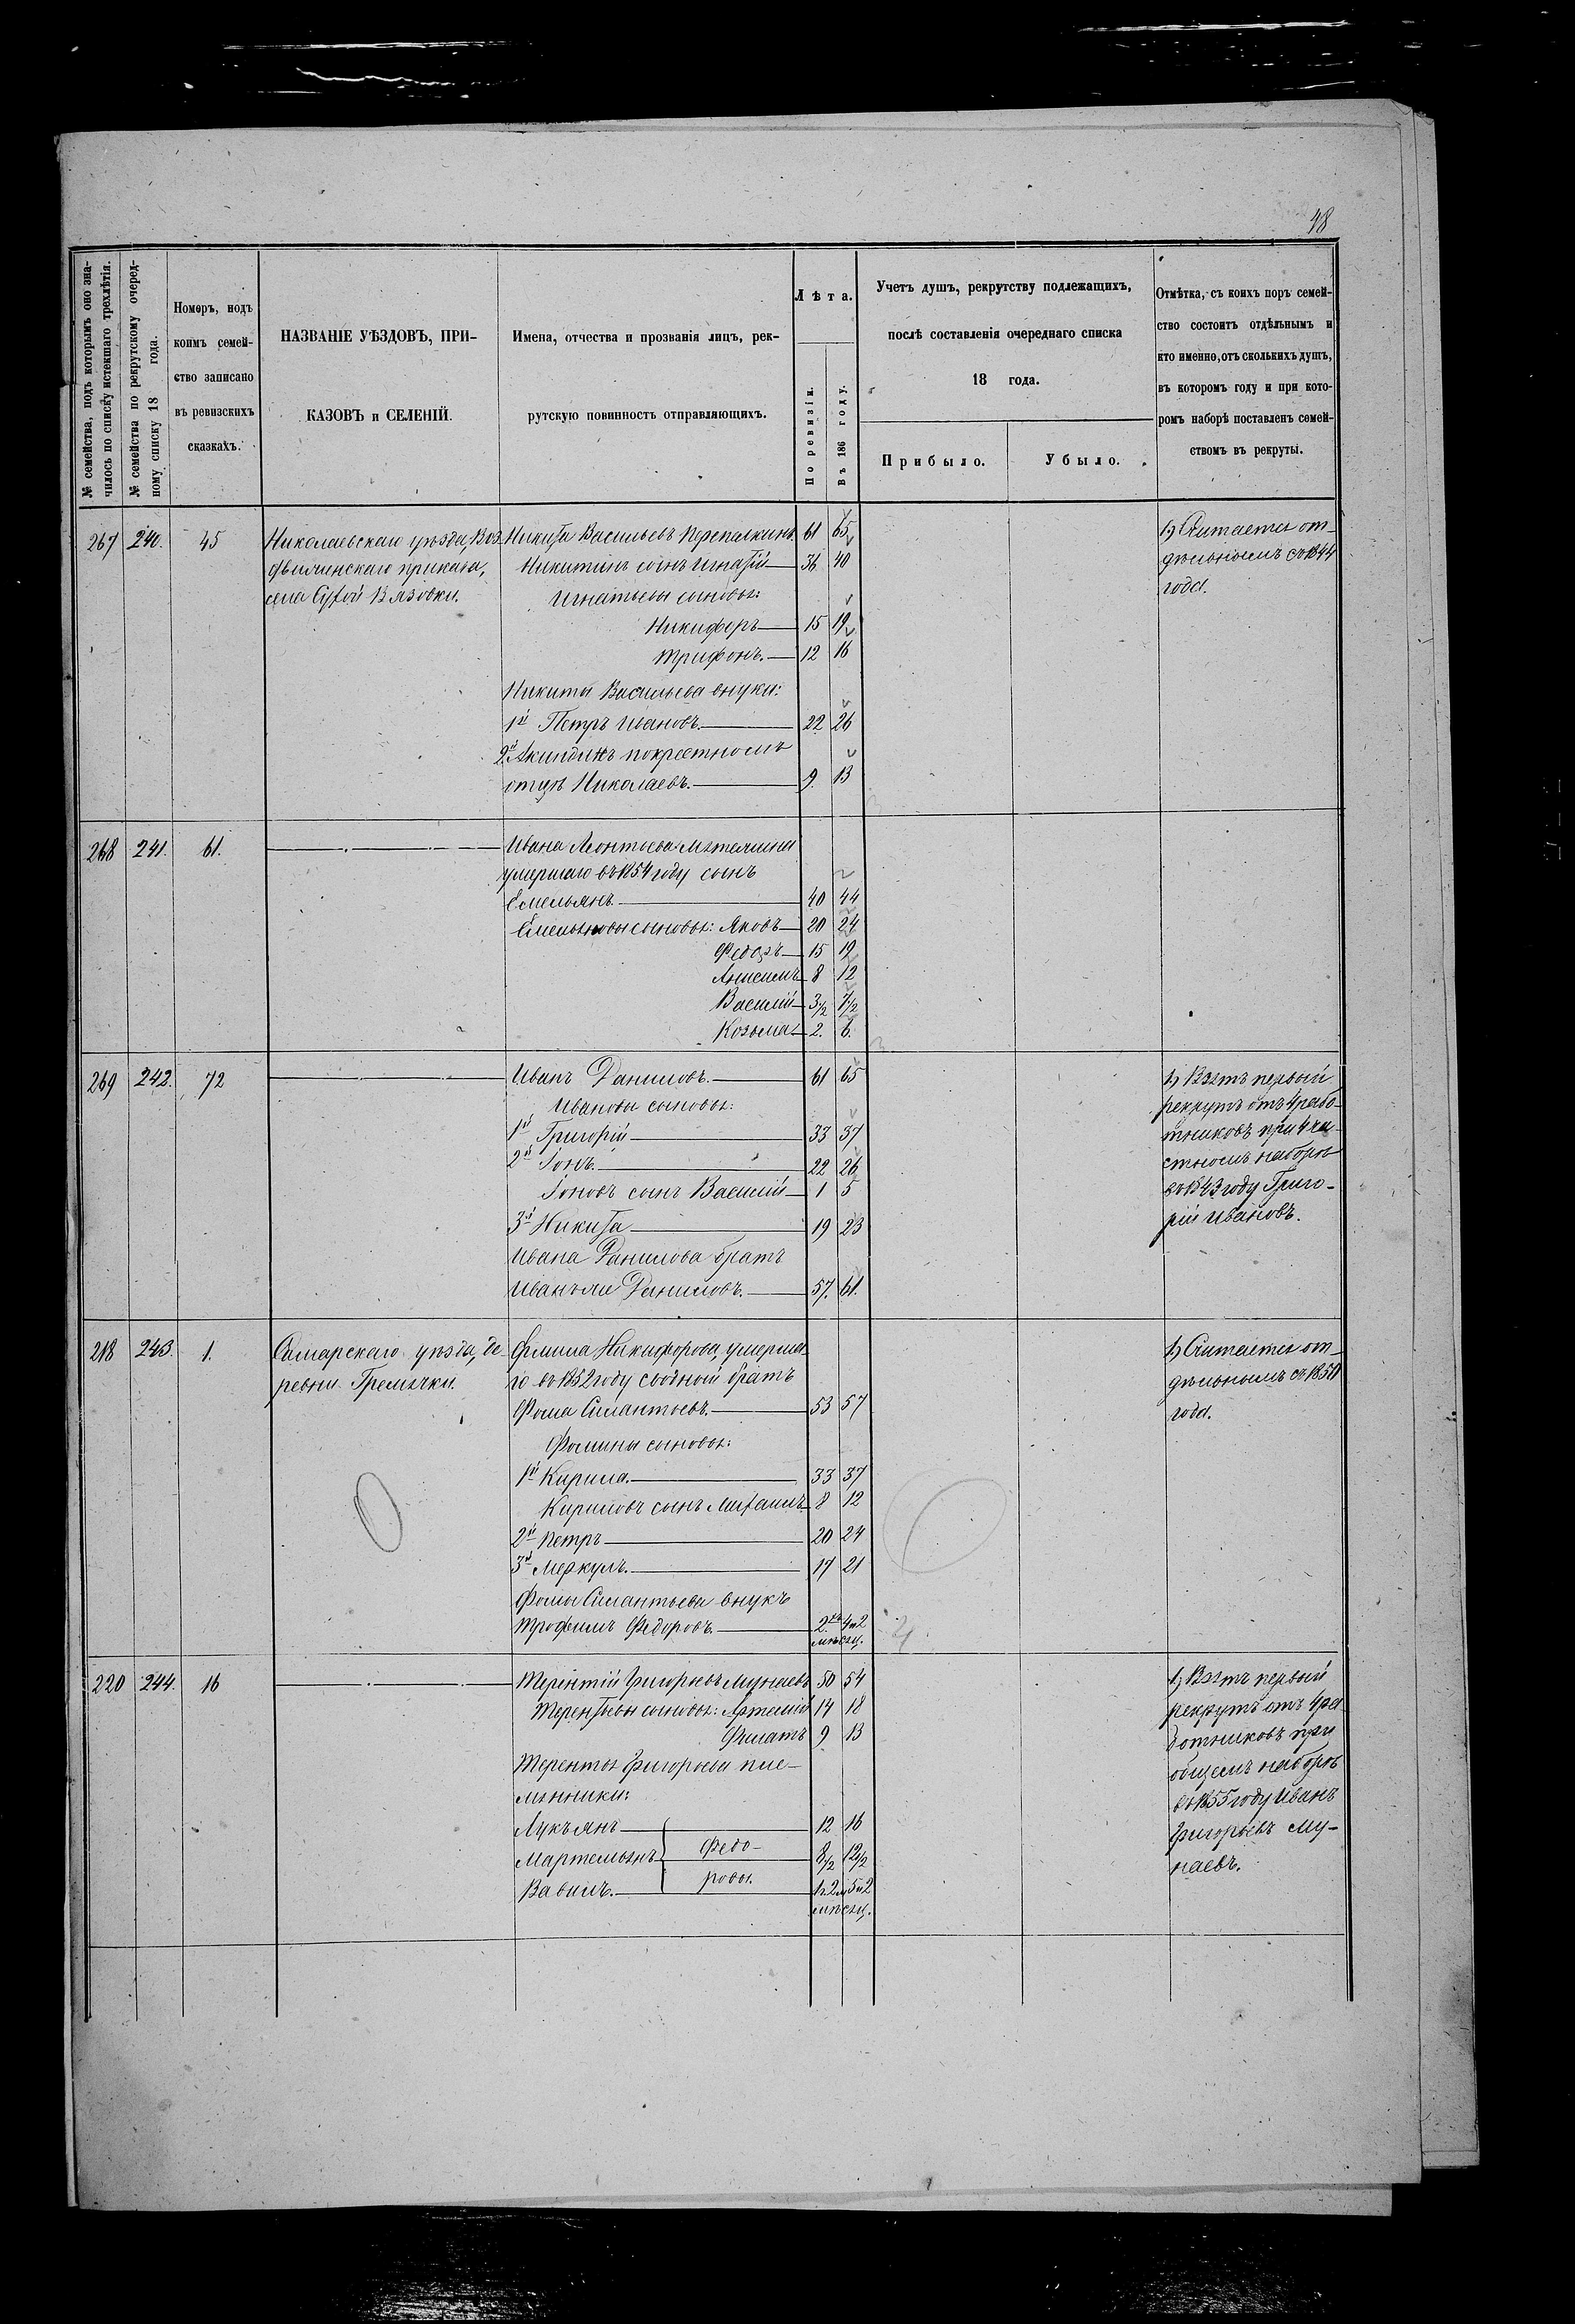 48
№ семейства, подъ которымъ оно зна-
чилось по списку истекшаго трехлѣтія.
№ семейства по рекрутскому очеред-
ному списку 18 года.
Номеръ, подъ
коимъ семей-
ство записано
въ ревизскихъ
сказкахъ.
НАЗВАНІЕ УѢЗДОВЪ, ПРИ-
КАЗОВЪ и СЕЛЕНІЙ.
Имена, отчества и прозванія лицъ, рек-
рутскую повинность отправляющихъ.
Лѣта.
По ревизіи.
Въ 186 году.
Учетъ душъ, рекрутству подлежащихъ,
послѣ составленія очереднаго списка
18 года.
Прибыло.
Убыло.
Отмѣтка, съ коихъ поръ семей-
ство состоитъ отдѣльнымъ и
кто именно, отъ сколькихъ душъ,
въ которомъ году и при кото-
ромъ наборѣ поставленъ семей-
ствомъ въ рекруты.
267 240. 45 Николаевскаго уѣзда, Воз- Никита Васильевъ Перепалкинъ 61 65 1) Считается от-
движенскаго приказа, Никитинъ сынъ Игнатій 36 40 дѣльнымъ съ 1844
села Сухой Вязовки. Игнатьевы сыновья: года.
Никифоръ 15 19
Трифонъ. 12 16
Никиты Васильева внуки:
1й Петръ Ивановъ. 22 26
2й Акиндинъ по крестномъ
отцѣ Николаевъ. 9. 13
268 241. 61. Ивана Леонтьева
умершаго въ 1854 году сынъ
Емельянъ 40 44
Емельяновы сыновья: Яковъ 20 24
Федоръ 15 19
Анисимъ 8 12
Василій 3½ 7½
Козьма 2. 6.
269 242. 72 Иванъ Даниловъ. 61 65 1) Взятъ первый
Ивановы сыновья: рекрутъ отъ 4 рабо-
1й Григорій 33 37 тниковъ при 4 ча-
2й Іонъ. 22 26 стномъ наборѣ
Іоновъ сынъ Василій 1 5 въ 1843 году Григо-
3й Никита 19 23 рій Ивановъ.
Ивана Данилова братъ
Иванъ же Даниловъ. 57. 61.
218 243. 1. Самарскаго уѣзда, де- Филипа Никифорова, умерша- 1) Считается от-
ревни Гремячки. го въ 1852 году сводный братъ дѣльнымъ съ 1850
Фома Силантьевъ. 53 57 года.
Фомины сыновья:
1й Кирила. 33 37
Кириловъ сынъ Михаилъ 8 12
2й Петръ 20 24
3й Меркулъ. 17 21
Фомы Силантьева внукъ
Трофимъ Федоровъ. 2 4 и 2
мѣсяц.
220 244. 16 Терентій Григорьевъ Мунаевъ 50 54 1) Взятъ первый
Терентьевы сыновья: Артемій 14 18 рекрутъ отъ 4 ра-
Филатъ 9 13 ботниковъ при
Терентья Григорьева пле- общемъ наборѣ
мянники: въ 1855 году Иванъ
Лукьянъ 12 16 Григорьевъ Му-
Мартемьянъ Федо- 8½ 12½ наевъ.
Вавилъ. ровы. 1 и 2 5 и 2
мѣсяц.